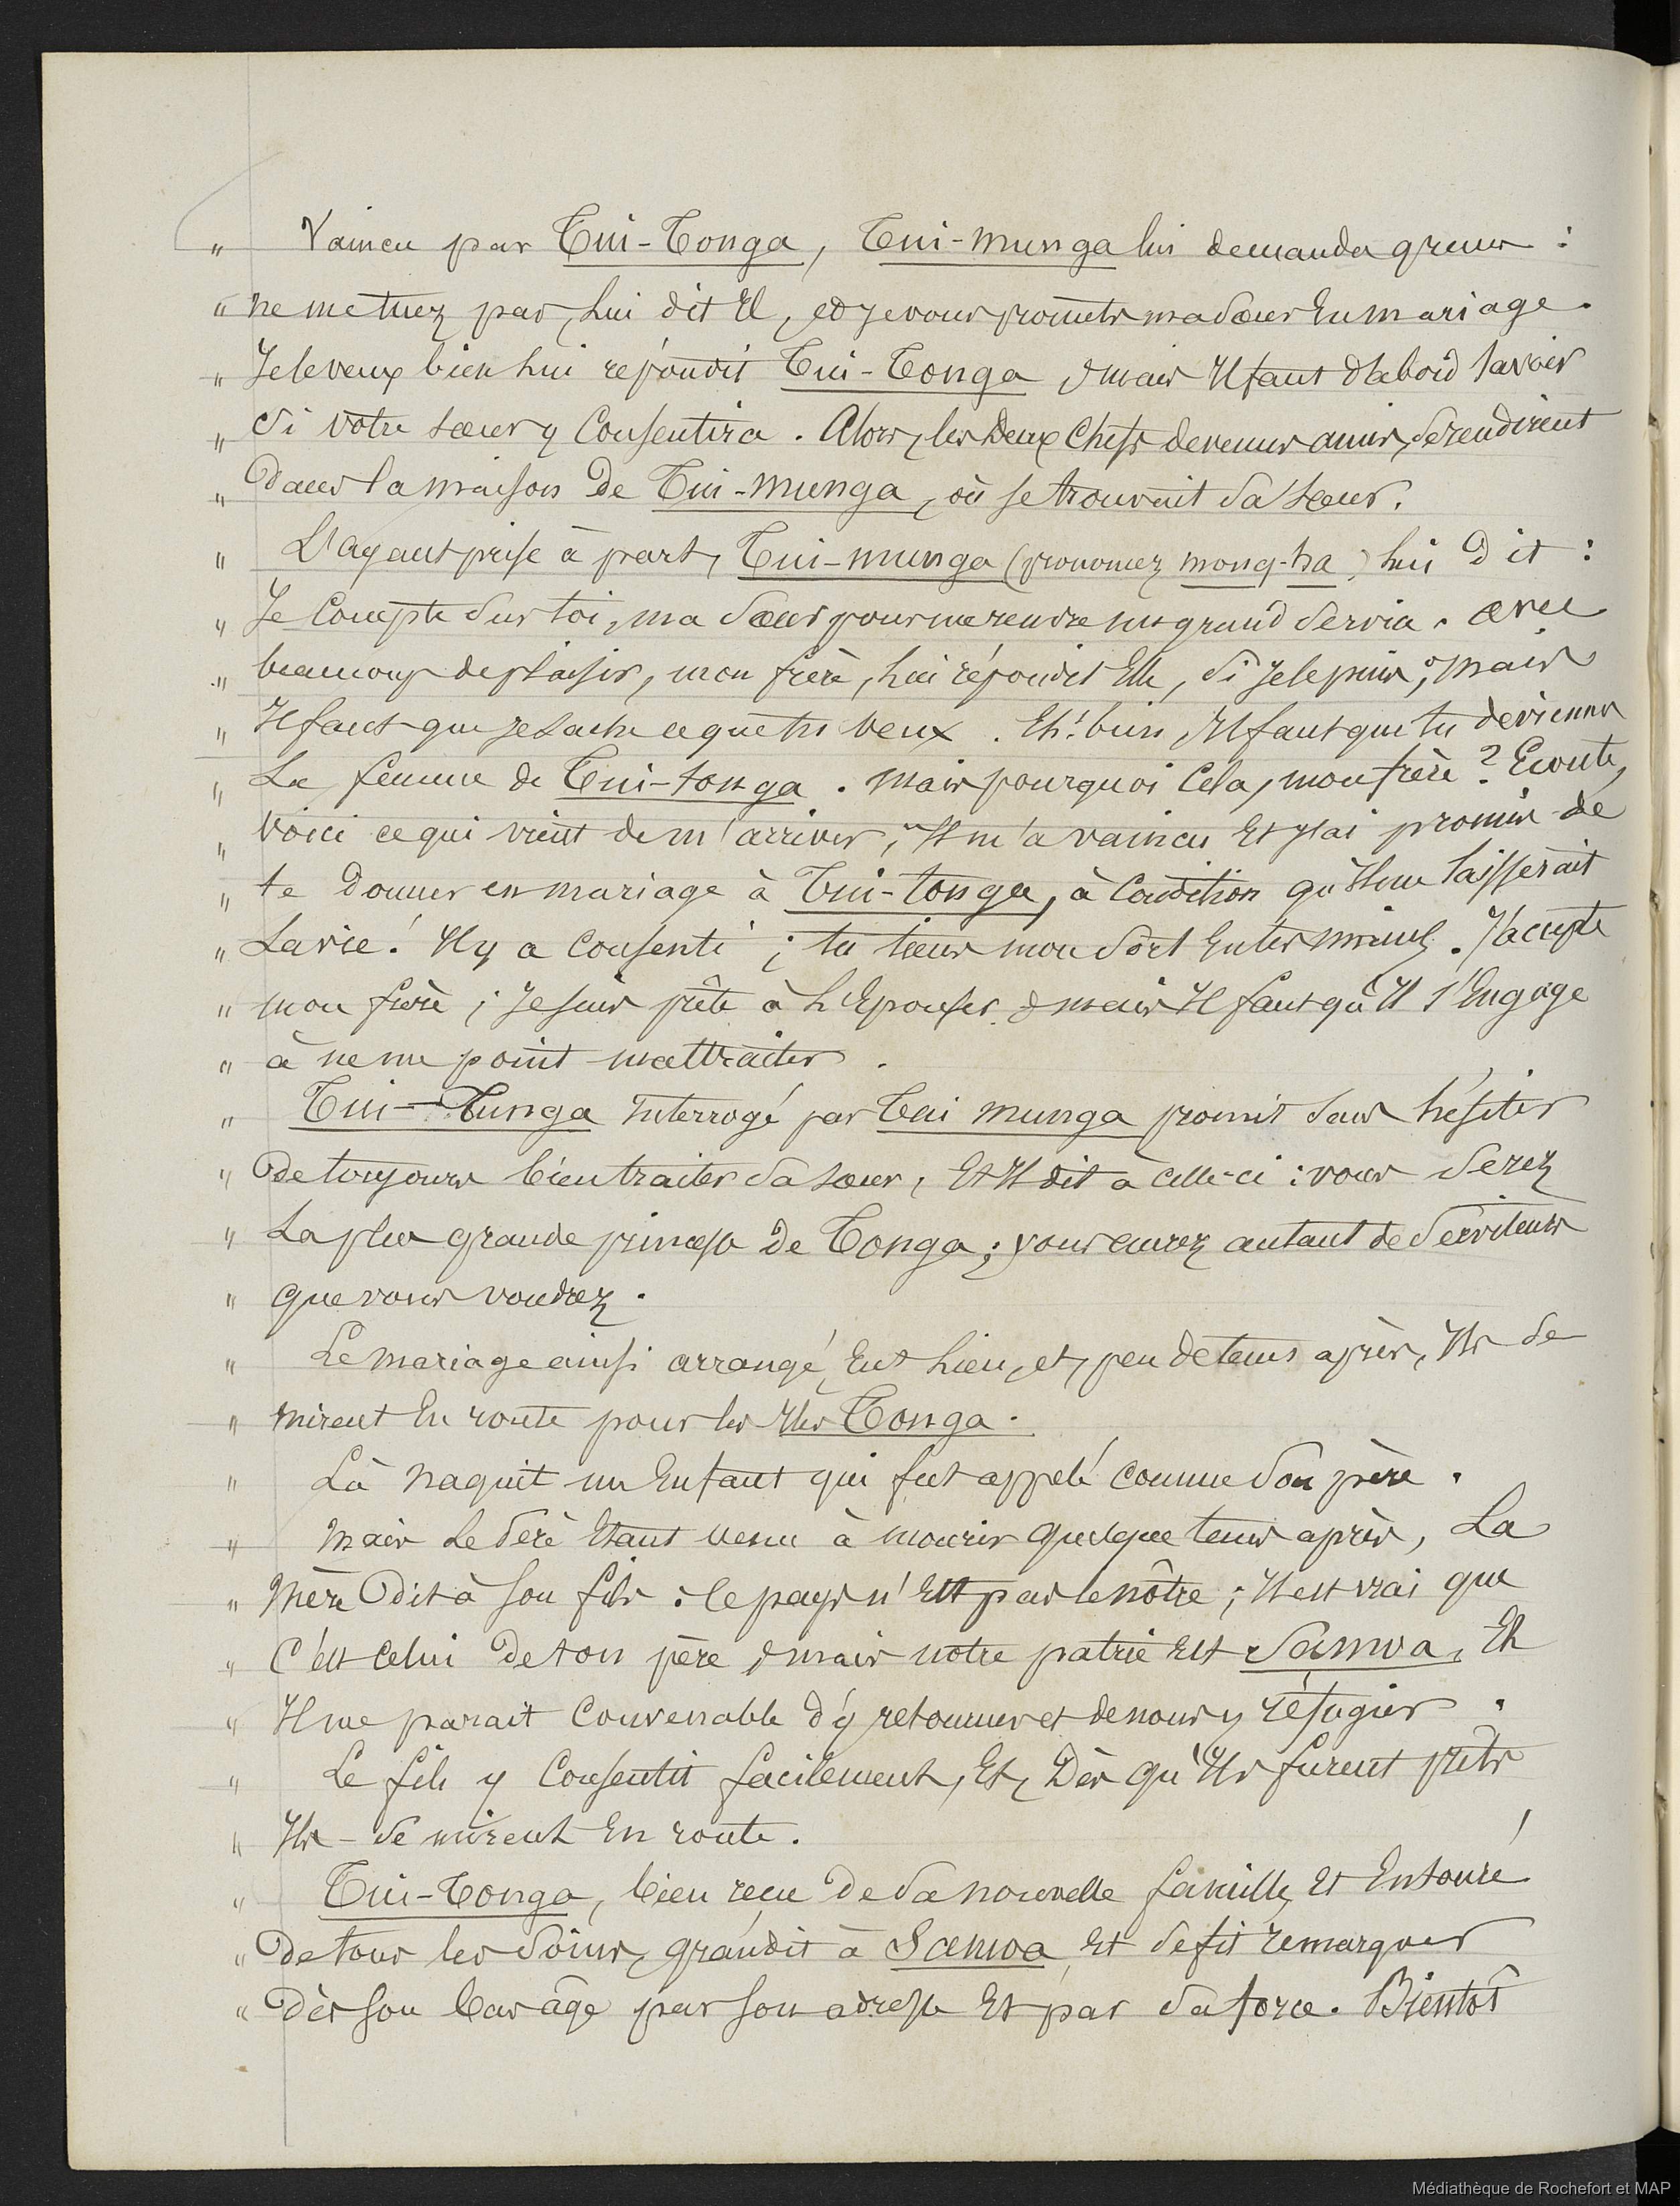 " Vaincu par Tui-Tonga, Tui-munga lui demanda grâce :
" ne me tuez pas, lui dit Il, et je vous promets ma sœur En mariage.
" Je le veux bien lui répondit Tui-Tonga, mais Il faut d'abord savoir
" si votre sœur y Consentira. Alors, les deux Chefs devenus amis, se rendirent
" dans la maison de Tui-munga, où se trouvait sa sœur.
" L'ayant prise à part, Tui-munga (prononcez mong-ha) lui dit :
" Je Compte sur toi, ma sœur pour me rendre un grand service. avec
" beaucoup de plaisir, mon frère, lui répondit Elle, si je le puis ; mais
" Il faut que je sache ce que tu veux. Eh! bien, Il faut que tu deviennes
" La femme de Tui-tonga. mais pourquoi Cela, mon frère ? Ecoute,
" voici ce qui vient de m'arriver ; Il m'a vaincu Et j'ai promis de
" te donner en mariage à Tui-tonga, à Condition qu'Il me laisserait
" La vie ! Il y a Consenti ; tu tiens mon sort En tes mains. J'accepte
" mon frère ; Je suis prête à L'Epouser, mais Il faut qu'Il s'Engage
" à ne me point maltraiter.
" Tui-Tunga Interrogé par Tui munga promit sans hésiter
" de toujours bien traiter sa sœur, Et Il dit à celle-ci : vous serez
" La plus grande princesse de Tonga ; vous aurez autant de Serviteurs
" que vous voudrez.
" Le mariage ainsi arrangé, Eut Lieu, et, peu de tems après, Ils se
" mirent En route pour les Iles Tonga.
" Là naquit un Enfant qui fut appelé comme son père.
" mais Le Père Etant venu à mourir quelque tems après, La
" Mère dit à son fils : le pays n'Est pas le nôtre ; Il est vrai que
" C'est celui de ton père, mais notre patrie Est Samoa, Et
" Il me parait Convenable d'y retourner et de nous y réfugier.
" Le fils y Consentit facilement, Et, Dès qu'Ils furent prêts
" Ils - se mirent En route.
" Tui-Tonga, bien reçu de sa nouvelle famille, Et Entouré
" de tous les soins, grandit à Samoa, Et se fit remarquer
" Dès son bas âge par son adresse Et par sa force. Bientôt
Médiathèque de Rochefort et MAP